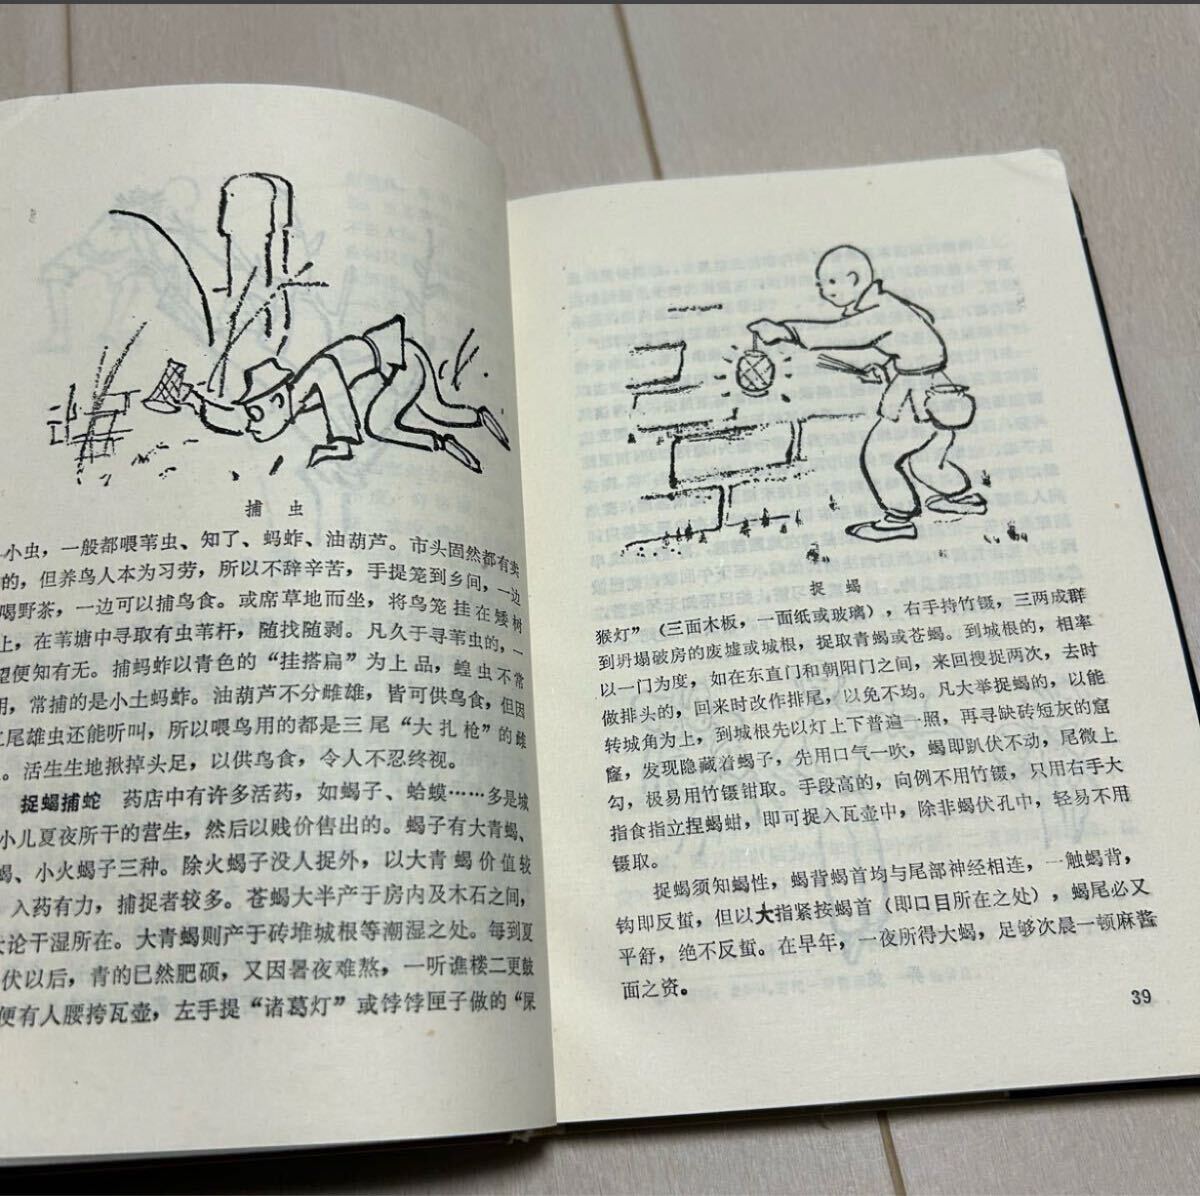 捕虫
小虫，一般都喂苇虫、知了、蚂蚱、油葫芦。市头固然都有卖
的，但养鸟人本为习劳，所以不辞辛苦，手提笼到乡间，一边
喝野茶，一边可以捕鸟食。或席草地而坐，将鸟笼挂在矮树
上，在苇塘中寻取有虫苇杆，随找随剥。凡久于寻苇虫的，一
望便知有无。捕蚂蚱以青色的“挂搭扁”为上品，蝗虫不常
用，常捕的是小土蚂蚱。油葫芦不分雌雄，皆可供鸟食，但因
尾雄虫还能听叫，所以喂鸟用的都是三尾“大扎枪”的雌
。活生生地揪掉头足，以供鸟食，令人不忍终视。
捉蝎捕蛇　药店中有许多活药，如蝎子、蛤蟆……多是城
小儿夏夜所干的营生，然后以贱价售出的。蝎子有大青蝎、
蝎、小火蝎子三种。除火蝎子没人捉外，以大青蝎价值较
入药有力，捕捉者较多。苍蝎大半产于房内及木石之间，
论干湿所在。大青蝎则产于砖堆城根等潮湿之处。每到夏
伏以后，青的已然肥硕，又因暑夜难熬，一听谯楼二更鼓
便有人腰挎瓦壶，左手提“诸葛灯”或饽饽匣子做的“屎
捉蝎
猴灯”（三面木板，一面纸或玻璃），右手持竹镊，三两成群
到坍塌破房的废墟或城根，捉取青蝎或苍蝎。到城根的，相率
以一门为度，如在东直门和朝阳门之间，来回搜捉两次，去时
做排头的，回来时改作排尾，以免不均。凡大举捉蝎的，以能
转城角为上，到城根先以灯上下普遍一照，再寻缺砖短灰的窟
窿，发现隐藏着蝎子，先用口气一吹，蝎即趴伏不动，尾微上
勾，极易用竹镊钳取。手段高的，向例不用竹镊，只用右手大
指食指立捏蝎蚶，即可捉入瓦壶中，除非蝎伏孔中，轻易不用
镊取。
捉蝎须知蝎性，蝎背蝎首均与尾部神经相连，一触蝎背，
钩即反蜇，但以大指紧按蝎首（即口目所在之处），蝎尾必又
平舒，绝不反蜇。在早年，一夜所得大蝎，足够次晨一顿麻酱
面之资。
39